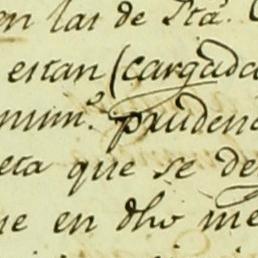 en las de Sta.
estan (cargada
nim.o prudenc
eta que se de
ue en dho me